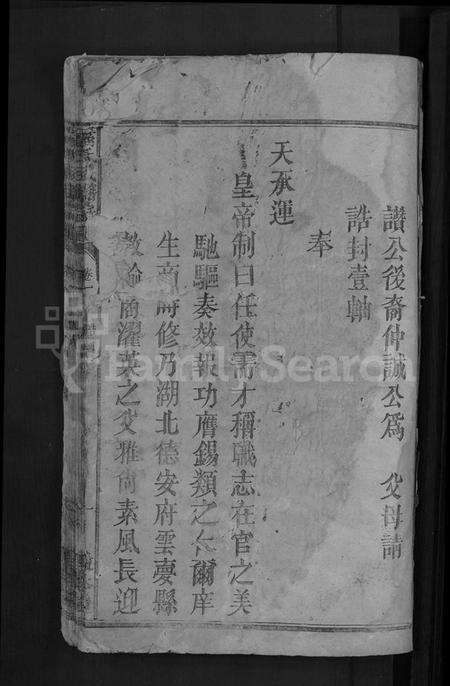 讃公後裔仲誠公爲 父母請
誥封壹軸
奉
天承運
皇帝制曰任使需才稱職志在官之美
馳驅奏效報功膺錫類之仁爾庠
生商時修乃湖北德安府雲夢縣
教諭商濯英之父雅尚素風長迎
卷一
FamilySearch